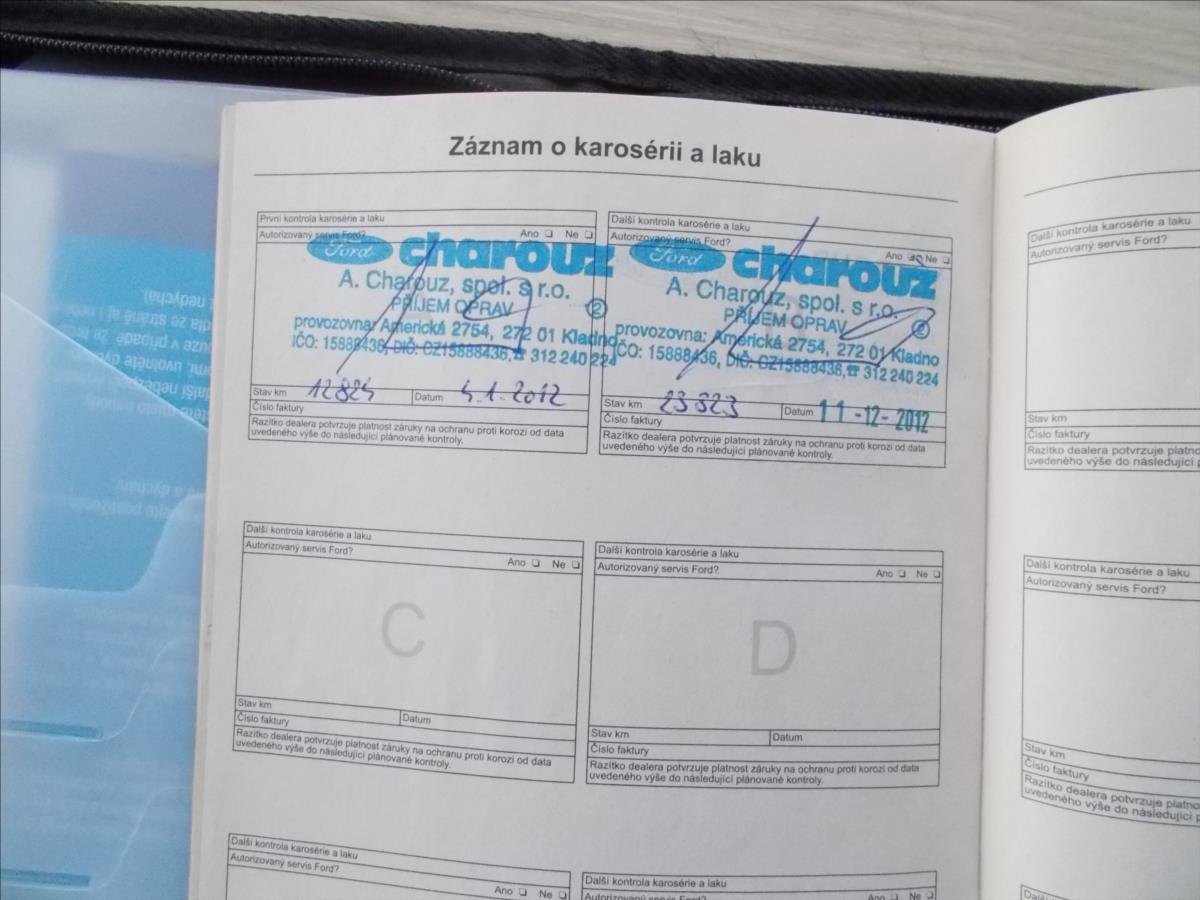 Záznam o karosérii a laku
První kontrola karosérie a laku
Autorizovaný servis Ford?
Ano ❏ Ne ❏
Ford charouz
A. Charouz, spol. s r.o.
PŘÍJEM OPRAV
2
provozovna: Americká 2754, 272 01 Kladno
IČO: 15888436, DIČ: CZ15888436, ☎ 312 240 224
Stav km 12824 Datum 4.1.2012
Číslo faktury
Razítko dealera potvrzuje platnost záruky na ochranu proti korozi od data
uvedeného výše do následující plánované kontroly.
Další kontrola karosérie a laku
Autorizovaný servis Ford?
Ano ❏ Ne ❏
Ford charouz
A. Charouz, spol. s r.o.
PŘÍJEM OPRAV
2
provozovna: Americká 2754, 272 01 Kladno
IČO: 15888436, DIČ: CZ15888436, ☎ 312 240 224
Stav km 23823 Datum 11-12-2012
Číslo faktury
Razítko dealera potvrzuje platnost záruky na ochranu proti korozi od data
uvedeného výše do následující plánované kontroly.
Další kontrola karosérie a laku
Autorizovaný servis Ford?
Ano ❏ Ne ❏
C
Stav km Datum
Číslo faktury
Razítko dealera potvrzuje platnost záruky na ochranu proti korozi od data
uvedeného výše do následující plánované kontroly.
Další kontrola karosérie a laku
Autorizovaný servis Ford?
Ano ❏ Ne ❏
D
Stav km Datum
Číslo faktury
Razítko dealera potvrzuje platnost záruky na ochranu proti korozi od data
uvedeného výše do následující plánované kontroly.
Další kontrola karosérie a laku
Autorizovaný servis Ford?
Ano ❏ Ne ❏
Další kontrola karosérie a laku
Autorizovaný servis Ford?
Ano ❏ Ne ❏
Další kontrola karosérie a laku
Autorizovaný servis Ford?
Stav km
Číslo faktury
Razítko dealera potvrzuje
uvedeného výše do následující
Další kontrola karosérie a laku
Autorizovaný servis Ford?
Stav km
Číslo faktury
Razítko dealera potvrzuje
uvedeného výše do následující